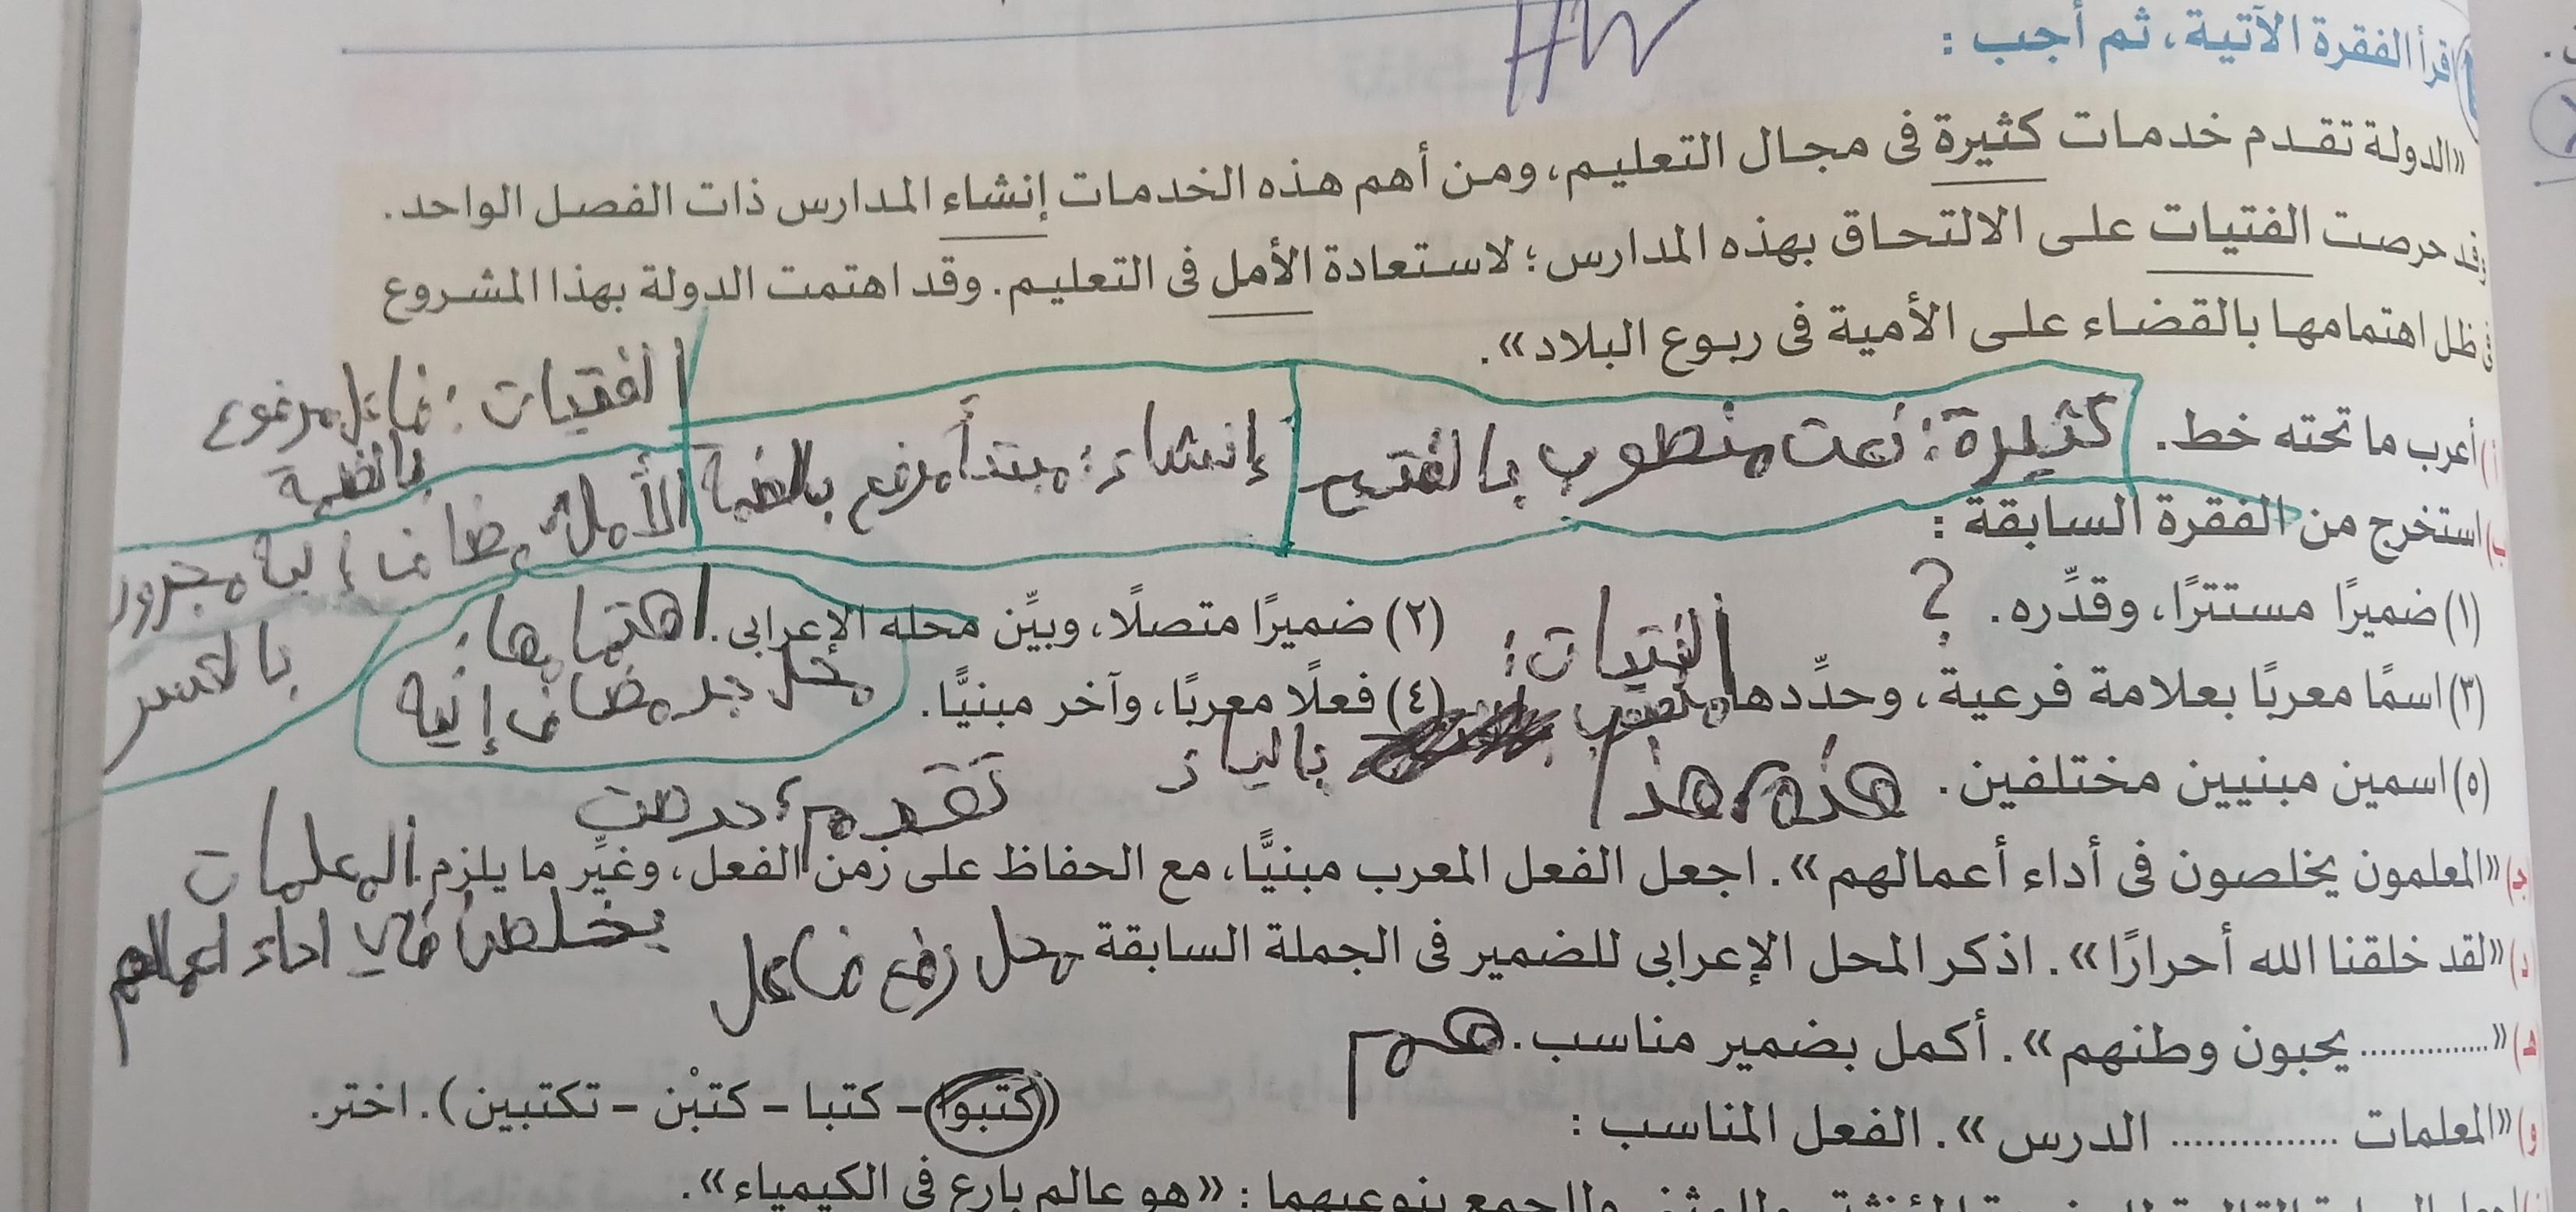 HW
اقرأ الفقرة الآتية، ثم أجب :
«الدولة تقدم خدمات كثيرة فى مجال التعليم، ومن أهم هذه الخدمات إنشاء المدارس ذات الفصل الواحد.
وقد حرصت الفتيات على الالتحاق بهذه المدارس؛ لاستعادة الأمل فى التعليم. وقد اهتمت الدولة بهذا المشروع
فى ظل اهتمامها بالقضاء على الأمية فى ربوع البلاد».
أ) أعرب ما تحته خط. كثيرة: نعت منصوب بالفتح
إنشاء: مبتدأ مرفوع بالضمة
الفتيات: فاعل مرفوع
بالضمة
الأمل: مضاف إليه مجرور
بالكسر
ب) استخرج من الفقرة السابقة :
(١) ضميرًا مستترًا، وقدِّره. ?
(٢) ضميرًا متصلًا، وبيِّن محله الإعرابى. اهتمامها:
محل جر مضاف إليه
(٣) اسمًا معربًا بعلامة فرعية، وحدِّدها. الفتيات:
منصوب
بالياء
(٤) فعلًا معربًا، وآخر مبنيًّا.
تقدم، حرصت
(٥) اسمين مبنيين مختلفين. هذه، هذا
جـ) «المعلمون يخلصون فى أداء أعمالهم». اجعل الفعل المعرب مبنيًّا، مع الحفاظ على زمن الفعل، وغيِّر ما يلزم. المعلمات
يخلصن في اداء اعمالهم
د) «لقد خلقنا الله أحرارًا». اذكر المحل الإعرابى للضمير فى الجملة السابقة محل رفع فاعل
هـ) «............... يحبون وطنهم». أكمل بضمير مناسب. هم
و) «المعلمات ............... الدرس». الفعل المناسب :
(كتبوا – كتبا – كتبْن – تكتبين). اختر.
والجمع بنوعيهما : «هو عالم بارع فى الكيمياء».